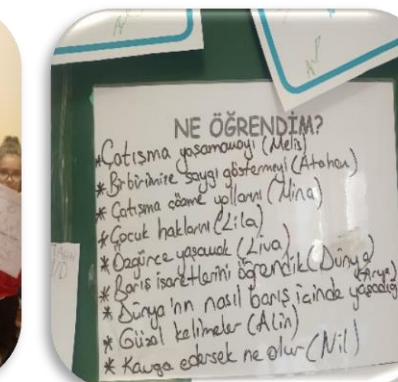 NE ÖĞRENDİM?
*Çatışma yaşamamayı (Melis)
*Birbirimize saygı göstermeyi (Atahan)
* Çatışma çözme yollarını (Mina)
*Çocuk haklarını (Lila)
* Özgürce yaşamak (Liva)
* Barış işaretlerini öğrendik (Dünya)
* Dünya'nın nasıl barış içinde yaşadığı (Arya)
* Güzel kelimeler (Alin)
* Kavga edersek ne olur (Nil)